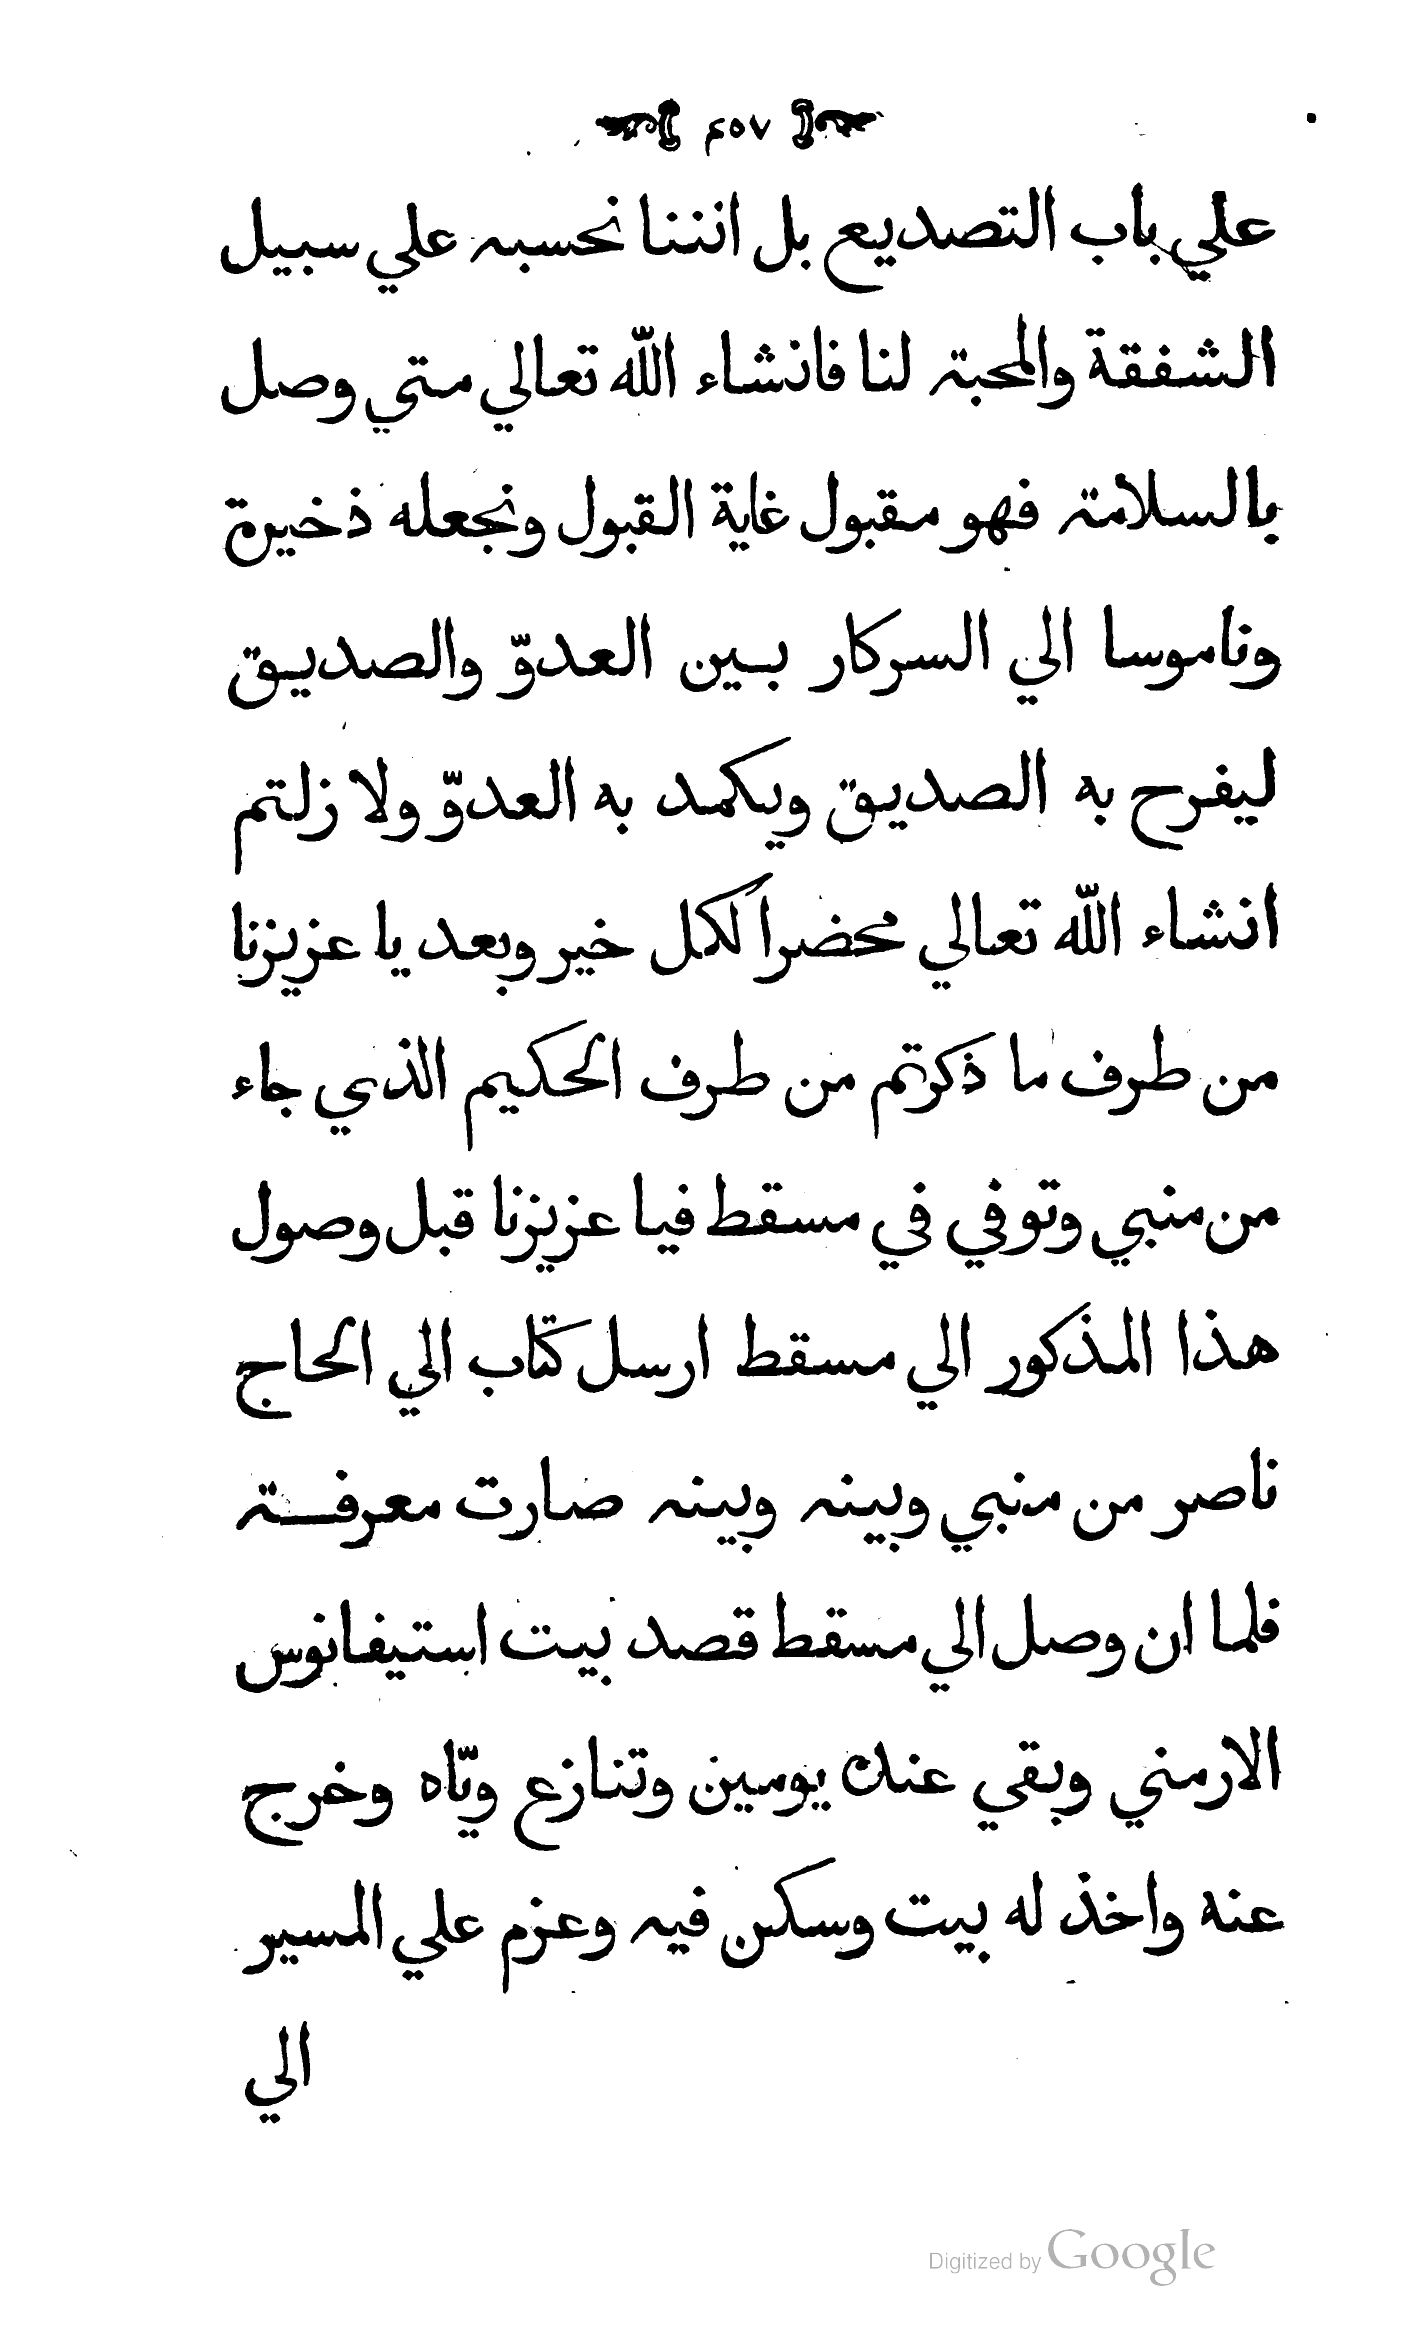 ۴٥٧
علي باب التصديع بل اننا نحسبه علي سبيل
الشفقة والمحبة لنا فانشاء الله تعالي متي وصل
بالسلامة فهو مقبول غاية القبول ونجعله ذخيرة
وناموسا الي السركار بين العدوّ والصديق
ليفرح به الصديق ويكمد به العدوّ ولا زلتم
انشاء الله تعالي محضراً لكل خير وبعد يا عزيزنا
من طرف ما ذكرتم من طرف الحكيم الذي جاء
من منبي وتوفي في مسقط فيا عزيزنا قبل وصول
هذا المذكور الي مسقط ارسل كتاب الي الحاج
ناصر من منبي وبينه وبينه صارت معرفة
فلما ان وصل الي مسقط قصد بيت استيفانوس
الارمني وبقي عنك يومين وتنازع ويّاه وخرج
عنه واخذ له بيت وسكن فيه وعزم علي المسير
الي
Digitized by Google